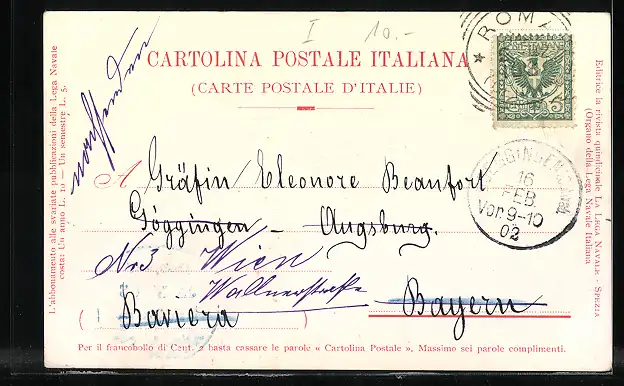 I 10.-
nachsenden
CARTOLINA POSTALE ITALIANA
(CARTE POSTALE D'ITALIE)
ROMA
5
GÖGGINGEN
16
FEB.
Vor.9-10
02
A Gräfin Eleonore Beaufort
Göggingen - Augsburg.
No 3 Wien
Wallnerstraße
(Baviera) Bayern
Per il francobollo di Cent. 2 basta cassare le parole « Cartolina Postale ». Massimo sei parole complimenti.
L'abbonamento alle svariate pubblicazioni della Lega Navale
costa: Un anno L. 10 — Un semestre L. 5.
Editrice la rivista quindicinale LA LEGA NAVALE - SPEZIA
(Organo della Lega Navale Italiana)